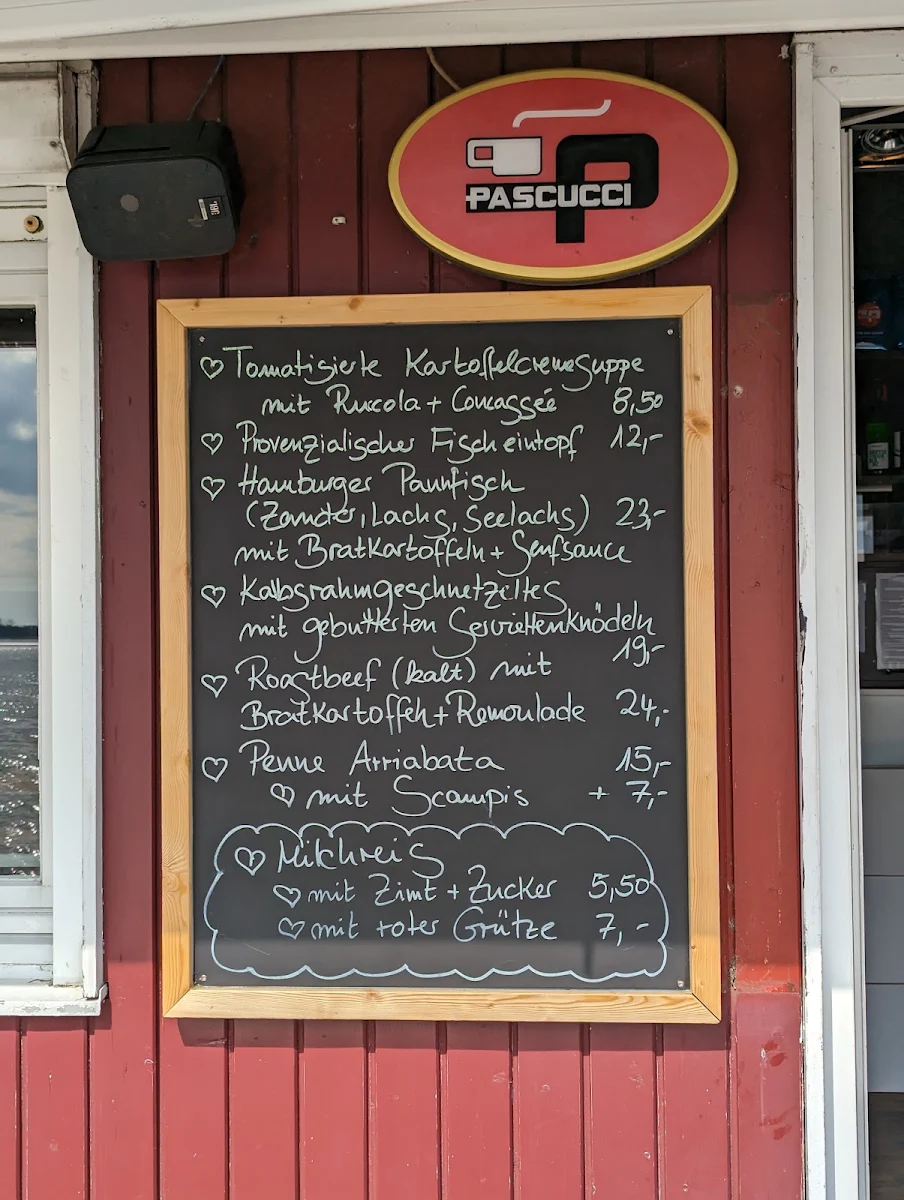 PASCUCCI
JBL
Tomatisierte Kartoffelcremesuppe
mit Ruccola + Concassée 8,50
Provenzialischer Fischeintopf 12,-
Hamburger Pannfisch
(Zander, Lachs, Seelachs) 23,-
mit Bratkartoffeln + Senfsauce
Kalbsrahmgeschnetzeltes
mit gebutterten Serviettenknödeln
19,-
Roastbeef (kalt) mit
Bratkartoffeln + Remoulade 24,-
Penne Arriabata 15,-
mit Scampis + 7,-
Milchreis
mit Zimt + Zucker 5,50
mit roter Grütze 7,-